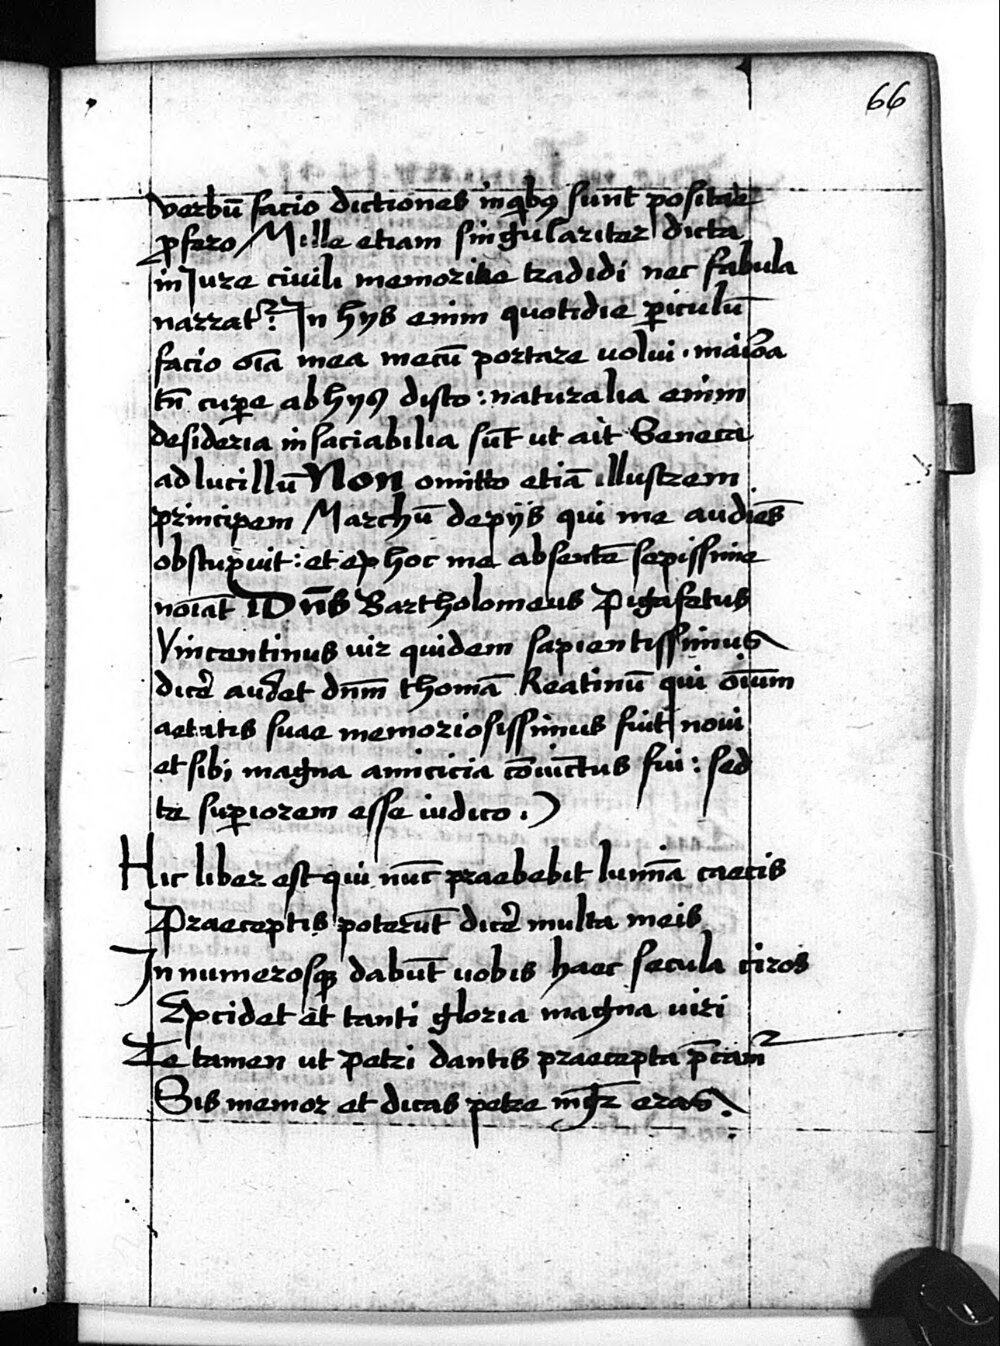 66
verbū facio dictiones in qbꝫ sunt positae
ꝓfero Mille etiam singulariter dicta
in Jure ciuili memoriae tradidi nec fabula
narrat᷑? In hys enim quotidie ꝑiculū
facio oīa mea mecū portare uolui. maiora
tn̄ cuꝑe ab hys disto: naturalia enim
desideria insaciabilia sūt ut ait Seneca
ad lucillū Non omitto etiā illustrem
principem Marchū de pijs qui me audiēs
obstupuit: et ex hoc me absente sepissime
noīat Dn̄s Bartholomeus Pigafetus
Vincentinus uir quidem sapientissimus
dicē audet dn̄m thomā Reatinū qui oīum
aetatis suae memoriosissimus fuit noui
et sibi magna amicicia cōiūctus fui: sed
te suꝑiorem esse iudico.
Hic liber est qui nūc praebebit lumīa caecis
Praeceptis poterūt dicē multa meis
In numerosqꝫ dabūt uobis haec secula uiros
Excidet et tanti gloria magna uiri
Te tamen ut petri dantis praecepta p̄cam᷑
Sis memor et dicas petre mḡr eras.